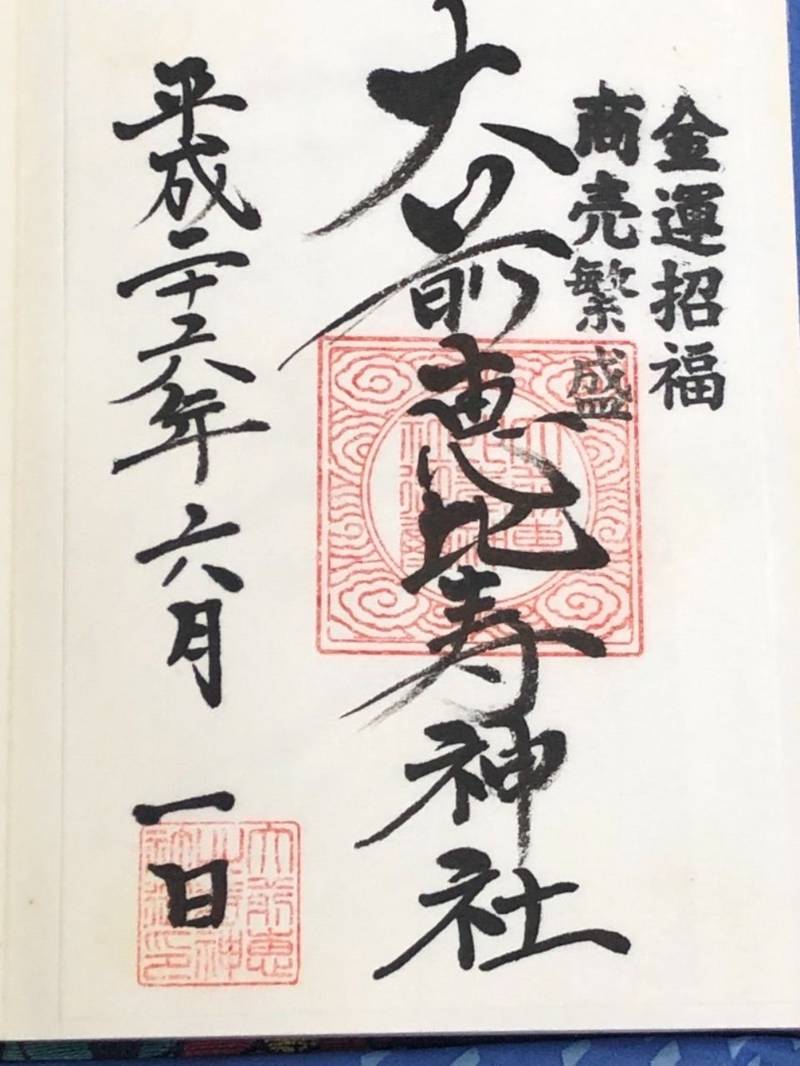 金運招福
商売繁盛
大前恵比寿神社
平成二十六年六月一日